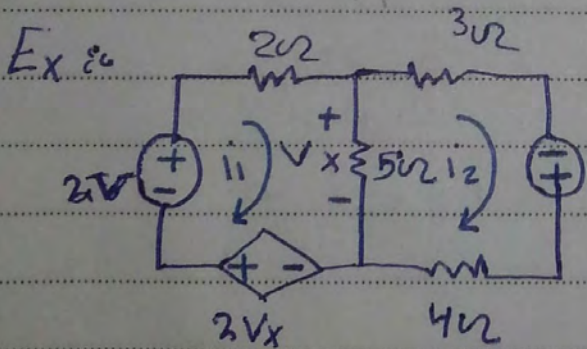 Ex :
2Ω 3Ω
+ - i1 + Vx - 5Ω i2 - +
+ -
2Vx 4Ω